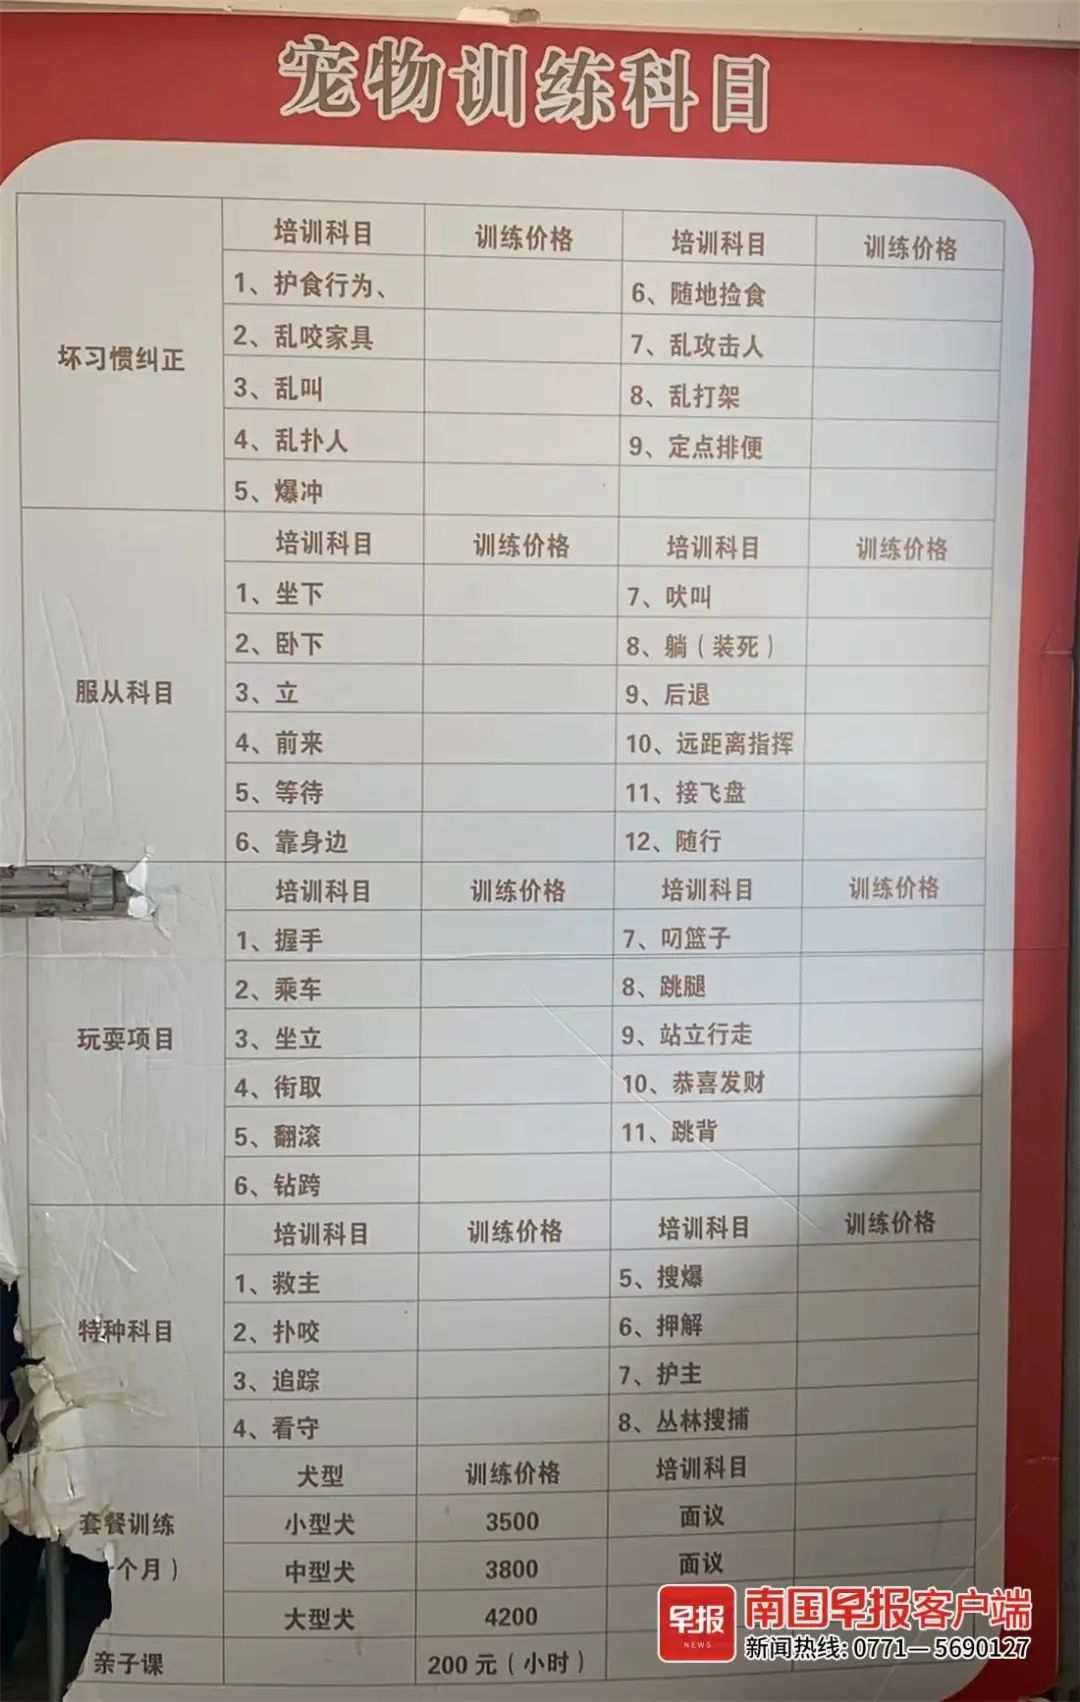 宠物训练科目
培训科目 训练价格 培训科目 训练价格
坏习惯纠正
1、护食行为、 6、随地捡食
2、乱咬家具 7、乱攻击人
3、乱叫 8、乱打架
4、乱扑人 9、定点排便
5、爆冲
服从科目
培训科目 训练价格 培训科目 训练价格
1、坐下 7、吠叫
2、卧下 8、躺（装死）
3、立 9、后退
4、前来 10、远距离指挥
5、等待 11、接飞盘
6、靠身边 12、随行
玩耍项目
培训科目 训练价格 培训科目 训练价格
1、握手 7、叼篮子
2、乘车 8、跳腿
3、坐立 9、站立行走
4、衔取 10、恭喜发财
5、翻滚 11、跳背
6、钻跨
特种科目
培训科目 训练价格 培训科目 训练价格
1、救主 5、搜爆
2、扑咬 6、押解
3、追踪 7、护主
4、看守 8、丛林搜捕
套餐训练
个月）
犬型 训练价格 培训科目
小型犬 3500 面议
中型犬 3800 面议
大型犬 4200
亲子课 200元（小时）
早报
NEWS
南国早报客户端
新闻热线：0771—5690127